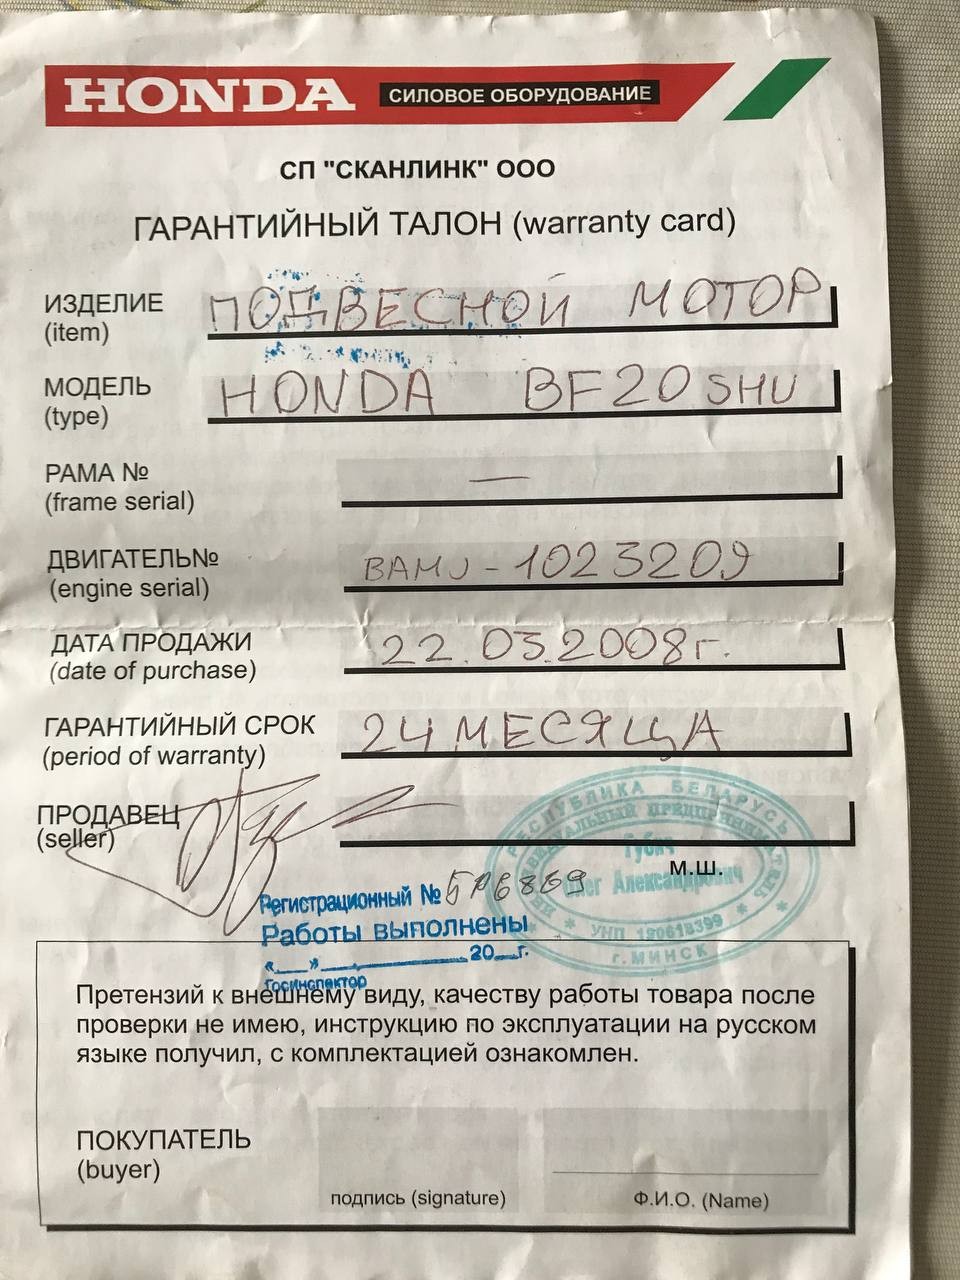 HONDA СИЛОВОЕ ОБОРУДОВАНИЕ
СП "СКАНЛИНК" ООО
ГАРАНТИЙНЫЙ ТАЛОН (warranty card)
ИЗДЕЛИЕ ПОДВЕСНОЙ МОТОР
(item)
МОДЕЛЬ HONDA BF20 SHU
(type)
РАМА № —
(frame serial)
ДВИГАТЕЛЬ№ BAMJ-1023209
(engine serial)
ДАТА ПРОДАЖИ 22.03.2008г.
(date of purchase)
ГАРАНТИЙНЫЙ СРОК 24 МЕСЯЦА
(period of warranty)
ПРОДАВЕЦ
(seller)
РЕСПУБЛИКА БЕЛАРУСЬ
Олег Александрович
УНП 190618399
г.МИНСК
м.ш.
Регистрационный №
Работы выполнены
«__»__________20__г.
Госинспектор
Претензий к внешнему виду, качеству работы товара после
проверки не имею, инструкцию по эксплуатации на русском
языке получил, с комплектацией ознакомлен.
ПОКУПАТЕЛЬ
(buyer)
подпись (signature) Ф.И.О. (Name)